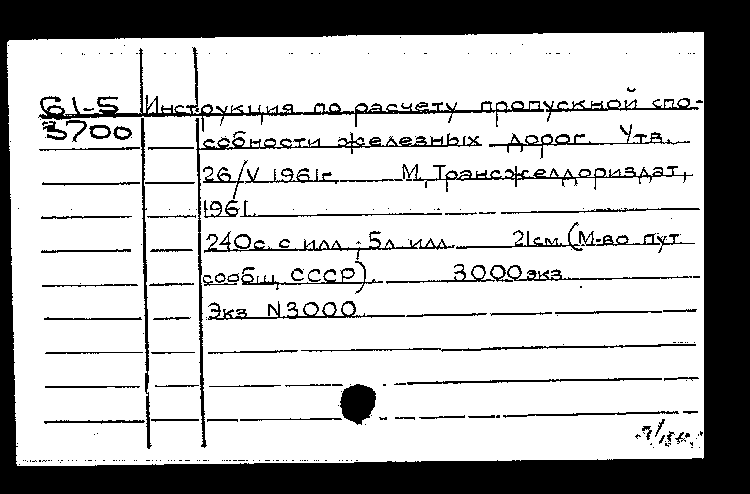 61-5 Инструкция по расчету пропускной спо-
3700 собности железных дорог. Утв.
26/V 1961г. М., Трансжелдориздат,
1961.
240с. с илл.; 5л. илл. 21см. (М-во пут.
сообщ. СССР). 3000экз.
Экз. N3000